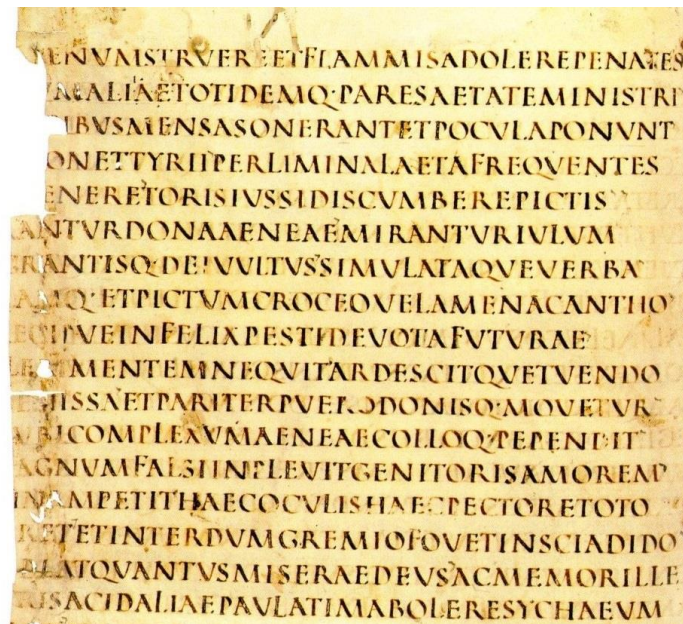 PENVMSTRVEREETFLAMMISADOLEREPENATES
VMALIAETOTIDEMQ·PARESAETATEMINISTRI
IBVSMENSASONERANTETPOCVLAPONVNT
ONETTYRIIPERLIMINALAETAFREQVENTES
ENERETORISIVSSIDISCVMBEREPICTIS
ANTVRDONAAENEAEMIRANTVRIVLVM
RANTISQ·DEIVVLTVSSIMVLATAQVEVERBA
AMQ·ETPICTVMCROCEOVELAMENACANTHO
ECIPVEINFELIXPESTIDEVOTAFVTVRAE
MENTEMNEQVITARDESCITQVETVENDO
ISSAETPARITERPVERODONISQ·MOVETVR
VBICOMPLEXVMAENEAECOLLOQ·PEPENDIT
AGNVMFALSIINPLEVITGENITORISAMOREM
INAMPETITHAECOCVLISHAECPECTORETOTO
RETETINTERDVMGREMIOFOVETINSCIADIDO
ATQVANTVSMISERAEDEVSACMEMORILLE
RISACIDALIAEPAVLATIMABOLERESYCHAEVM